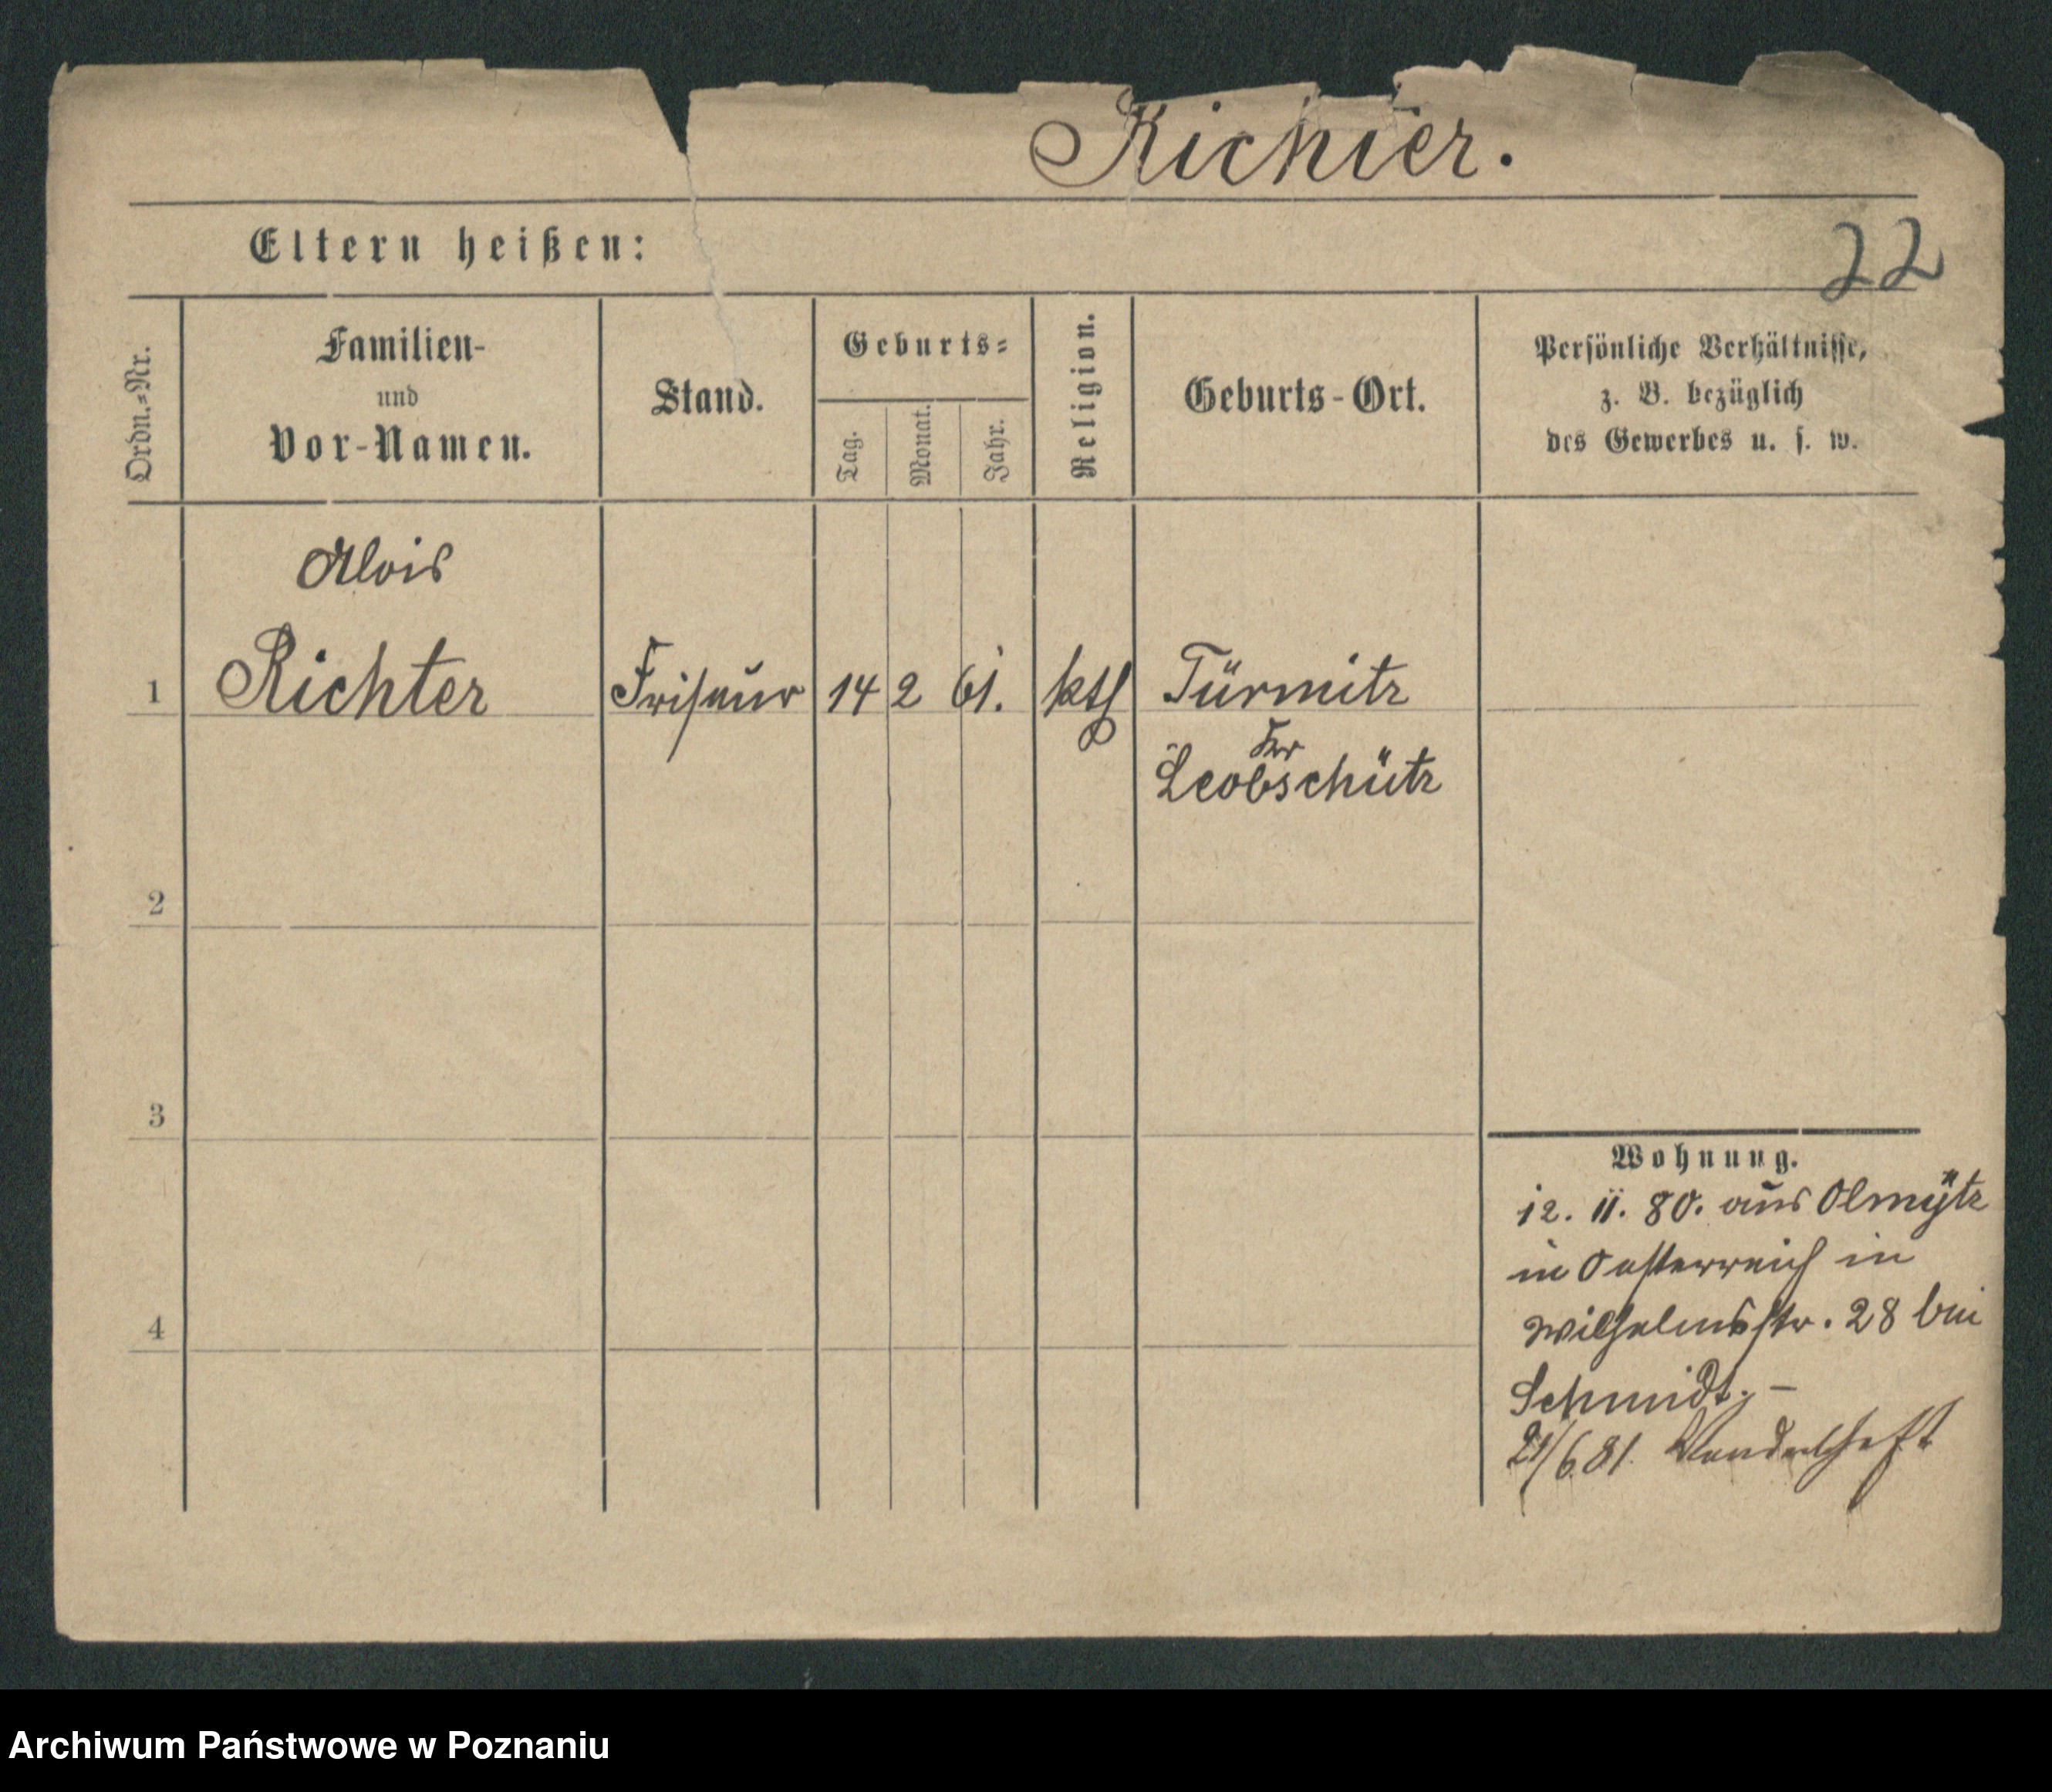 Richter.
Eltern heißen:
22
Ordn.=Nr.
Familien-
und
Vor-Namen.
Stand.
Geburts=
Tag.
Monat.
Jahr.
Religion.
Geburts-Ort.
Persönliche Verhältnisse,
z. B. bezüglich
des Gewerbes u. s. w.
Alois
1 Richter Friseur 14 2 61. kth Türmitz
Kr
Leobschütz
2
3
4
Wohnung.
12. 11. 80. aus Olmütz
in Oesterreich in
Wilhelmsstr. 28 bei
Schmidt. –
21/6 81. Wanderschaft
Archiwum Państwowe w Poznaniu